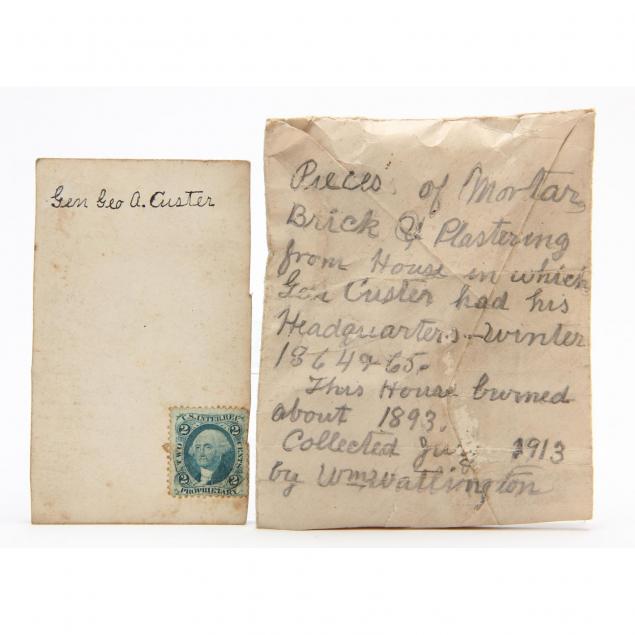 Gen Geo A. Custer
U.S. INTER. REV.
2 2
TWO CENTS
2 2
PROPRIETARY
Pieces of Mortar,
Brick & Plastering
from House in which
Gen Custer had his
Headquarters Winter
1864 & 65.
This House burned
about 1893.
Collected 1913
by Wm